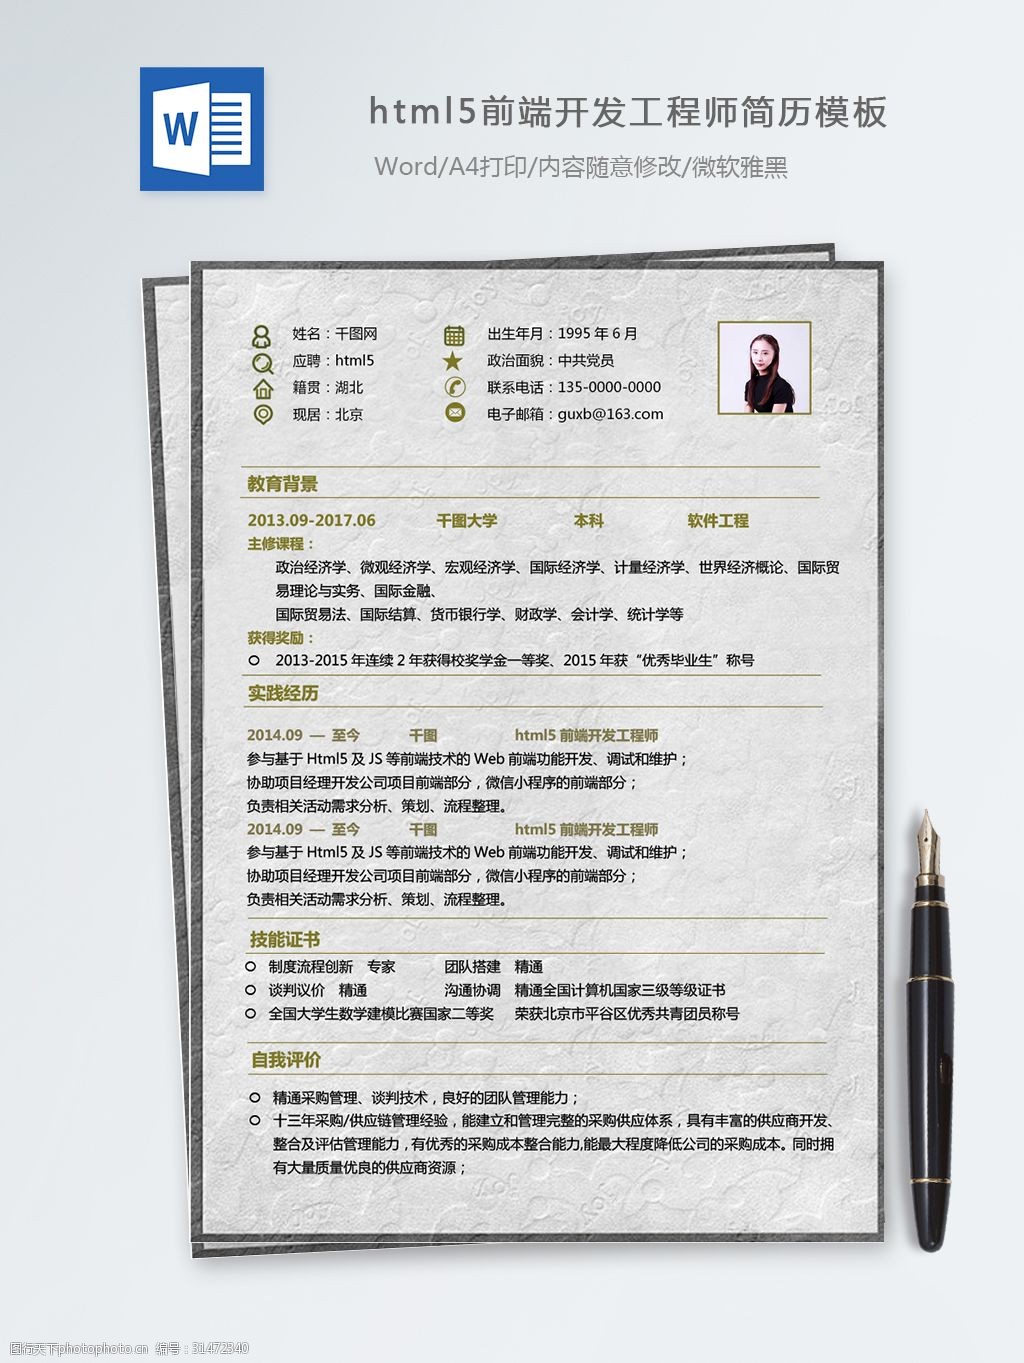 W
html5前端开发工程师简历模板
Word/A4打印/内容随意修改/微软雅黑
姓名：千图网 出生年月：1995 年 6 月
应聘：html5 政治面貌：中共党员
籍贯：湖北 联系电话：135-0000-0000
现居：北京 电子邮箱：guxb@163.com
教育背景
2013.09-2017.06 千图大学 本科 软件工程
主修课程：
政治经济学、微观经济学、宏观经济学、国际经济学、计量经济学、世界经济概论、国际贸
易理论与实务、国际金融、
国际贸易法、国际结算、货币银行学、财政学、会计学、统计学等
获得奖励：
2013-2015 年连续 2 年获得校奖学金一等奖、2015 年获“优秀毕业生”称号
实践经历
2014.09 — 至今 千图 html5 前端开发工程师
参与基于 Html5 及 JS 等前端技术的 Web 前端功能开发、调试和维护；
协助项目经理开发公司项目前端部分，微信小程序的前端部分；
负责相关活动需求分析、策划、流程整理。
2014.09 — 至今 千图 html5 前端开发工程师
参与基于 Html5 及 JS 等前端技术的 Web 前端功能开发、调试和维护；
协助项目经理开发公司项目前端部分，微信小程序的前端部分；
负责相关活动需求分析、策划、流程整理。
技能证书
制度流程创新 专家 团队搭建 精通
谈判议价 精通 沟通协调 精通全国计算机国家三级等级证书
全国大学生数学建模比赛国家二等奖 荣获北京市平谷区优秀共青团员称号
自我评价
精通采购管理、谈判技术，良好的团队管理能力；
十三年采购/供应链管理经验，能建立和管理完整的采购供应体系，具有丰富的供应商开发、
整合及评估管理能力，有优秀的采购成本整合能力,能最大程度降低公司的采购成本。同时拥
有大量质量优良的供应商资源；
图行天下photophoto.cn 编号：31472340